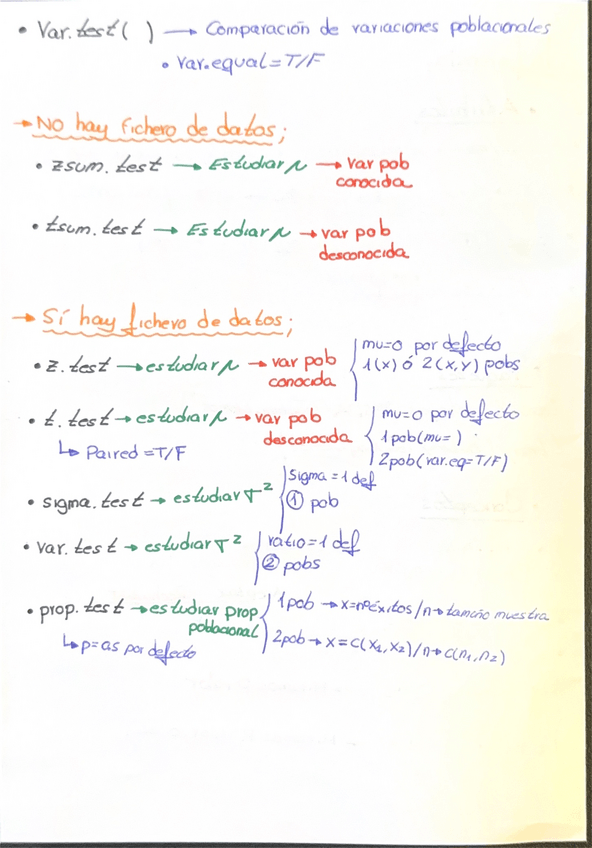 • Var.test( ) → Comparación de variaciones poblacionales
• Var.equal=T/F
→ No hay fichero de datos;
• zsum.test → Estudiar μ → var pob
conocida
• tsum.test → Estudiar μ → var pob
desconocida
→ Sí hay fichero de datos;
• z.test → estudiar μ → var pob
conocida
mu=0 por defecto
1(x) ó 2(x,y) pobs
• t.test → estudiar μ → var pob
desconocida
↳ Paired=T/F
mu=0 por defecto
1pob(mu= )
2pob(var.eq=T/F)
• sigma.test → estudiar σ²
Sigma=1 def
① pob
• var.test → estudiar σ²
ratio=1 def
② pobs
• prop.test → estudiar prop
poblacional
↳ p=0.5 por defecto
1pob → x=nºéxitos/n → tamaño muestra
2pob → x=c(x₁,x₂)/n → c(n₁,n₂)